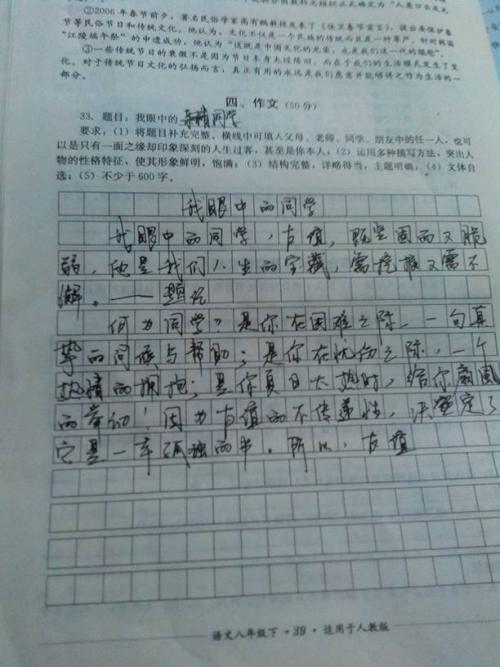 ②2006年春节前夕，著名民俗学家高有鹏教授发表了《保卫春节宣言》，提出要保护春
节等民俗节日和传统文化。他认为：文化不仅是一个民族的传统而且是一种尊严。针对韩国
“江陵端午祭”的申遗成功，他认为“这既是中国文化的光荣，也是我们这一代的尴尬”。
③一些传统节日的衰微不是因为节日本身太过陈旧，而在于我们的生活模式发生了变
化。对于传统节日文化的弘扬而言，真正有用的永远是我们愿意并能够将之作为生活的一
部分。
四、作文（50分）
33. 题目：我眼中的
要求：（1）将题目补充完整，横线中可填入父母、老师、同学、朋友中的任一人，也可
以是只有一面之缘却印象深刻的人生过客，甚至是你本人；（2）运用多种描写方法，突出人
物的性格特征，使其形象鲜明，饱满；（3）结构完整，详略得当，主题明确；（4）文体自
选；（5）不少于600字。
我眼中的同学
我眼中的同学，友谊，既坚固而又脆
弱，他是我们人生的宝藏，需挖掘又需不
懈。——题记
何为“同学”？是你在困难之际，一句真
挚的问候与帮助；是你在忧伤之际，一个
热情的拥抱；是你夏日大热时，给你扇风
的举动！因为友谊的不传递性，决定了
它是一本孤独的书。所以，友谊
语文八年级下·39·适用于人教版